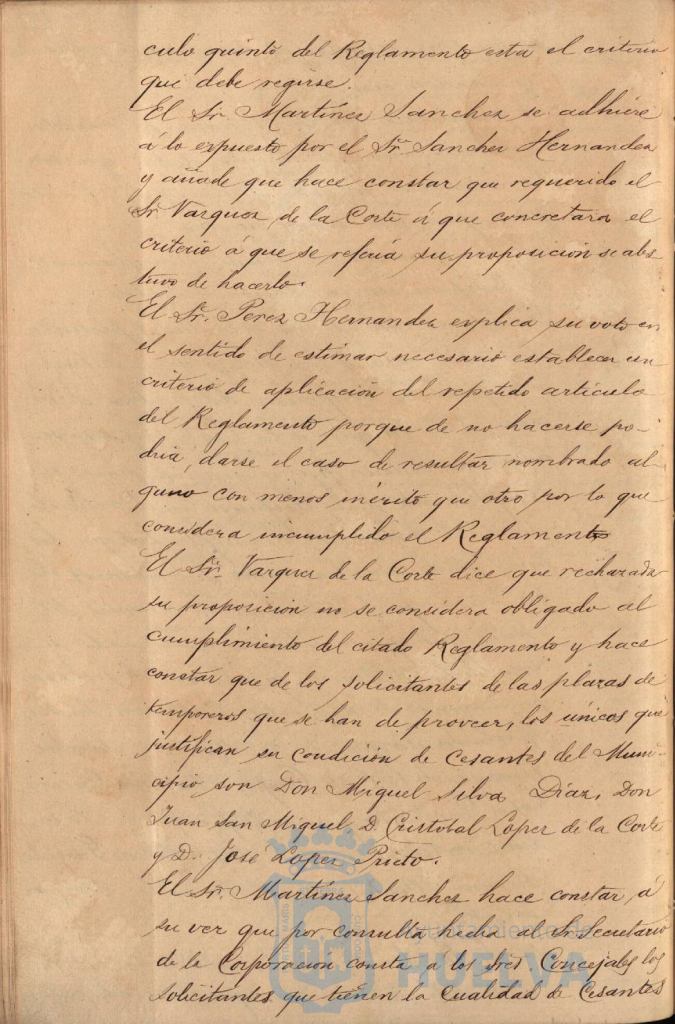 culo quinto del Reglamento esta el criterio
que debe regirse.
El Sr. Martínez Sanchez se adhiere
á lo expuesto por el Sr. Sanchez Hernandez
y añade que hace constar que requerido el
Sr. Vazquez de la Corte á que concretara el
criterio á que se referia su proposicion se abs-
tuvo de hacerlo.
El Sr. Perez Hernandez explica su voto en
el sentido de estimar necesario establecer un
criterio de aplicación del repetido articulo
del Reglamento porque de no hacerse po-
dria, darse el caso de resultar nombrado al-
guno con menos mérito que otro por lo que
considera incumplido el Reglamento
El Sr. Vazquez de la Corte dice que rechazada
su proposicion no se considera obligado al
cumplimiento del citado Reglamento y hace
constar que de los solicitantes de las plazas de
temporeros que se han de proveer, los únicos que
justifican su condición de Cesantes del Muni-
cipio son Don Miguel Silva Díaz, Don
Juan San Miguel D. Cristobal Lopez de la Corte
y D. José Lopez Prieto.
El Sr. Martínez Sanchez hace constar, á
su ver que por consulta hecha al Sr. Secretario
de la Corporacion consta á los tres Concejales los
solicitantes que tienen la Cualidad de Cesantes
Ayuntamiento de
HUELVA